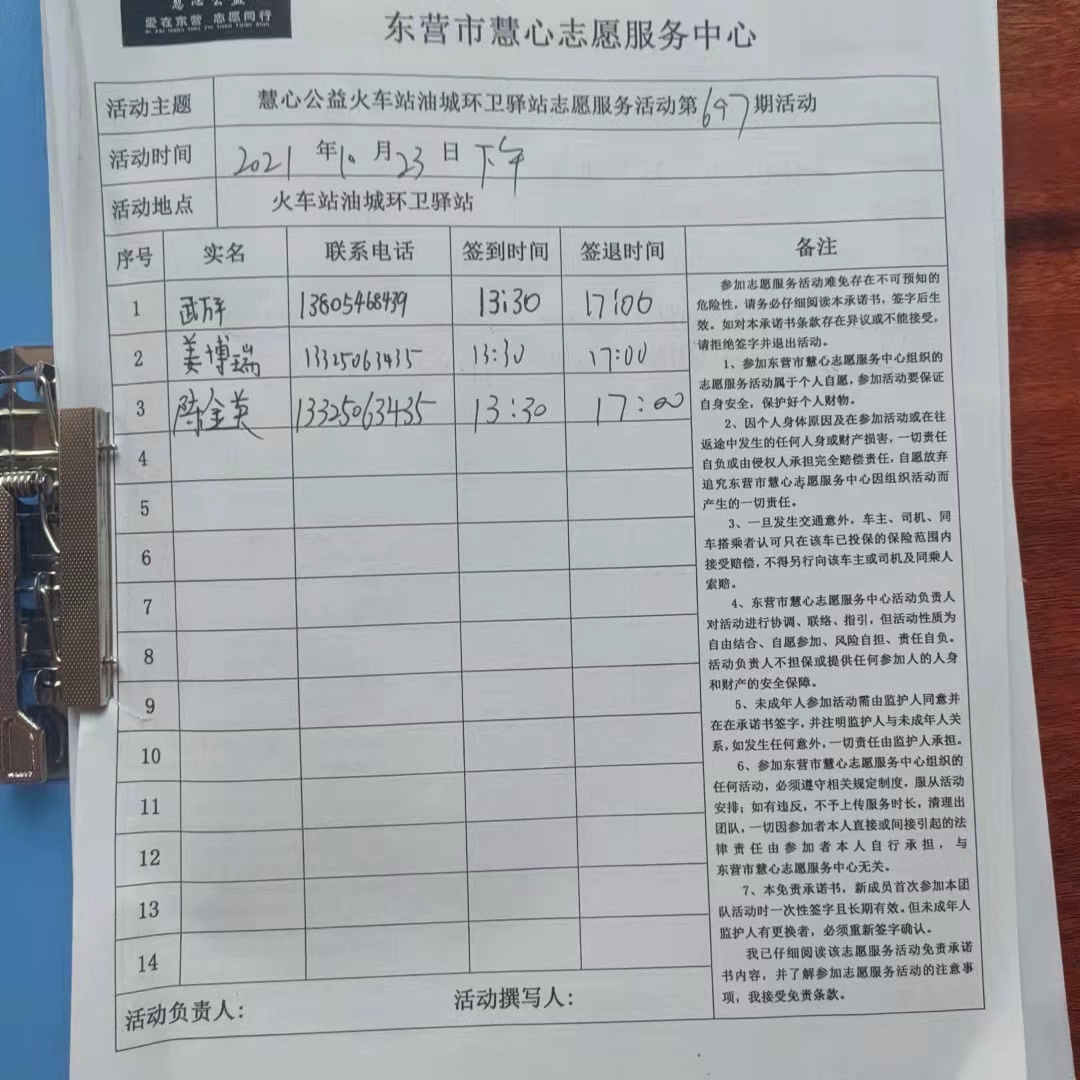 爱在东营 志愿同行
AI ZAI DONG YING ZHI YUAN TONG XING
东营市慧心志愿服务中心
活动主题 慧心公益火车站油城环卫驿站志愿服务活动第697期活动
活动时间 2021 年10 月23 日 下午
活动地点 火车站油城环卫驿站
序号 实名 联系电话 签到时间 签退时间 备注
1 武萍 13605468439 13:30 17:00
2 姜博瑞 13325063435 13:30 17:00
3 陈金英 13325063435 13:30 17:00
4
5
6
7
8
9
10
11
12
13
14
参加志愿服务活动难免存在不可预知的
危险性，请务必仔细阅读本承诺书，签字后生
效。如对本承诺书条款存在异议或不能接受，
请拒绝签字并退出活动。
1、参加东营市慧心志愿服务中心组织的
志愿服务活动属于个人自愿，参加活动要保证
自身安全，保护好个人财物。
2、因个人身体原因及在参加活动或在往
返途中发生的任何人身或财产损害，一切责任
自负或由侵权人承担完全赔偿责任，自愿放弃
追究东营市慧心志愿服务中心因组织活动而
产生的一切责任。
3、一旦发生交通意外，车主、司机、同
车搭乘者认可只在该车已投保的保险范围内
接受赔偿，不得另行向该车主或司机及同乘人
索赔。
4、东营市慧心志愿服务中心活动负责人
对活动进行协调、联络、指引，但活动性质为
自由结合、自愿参加、风险自担、责任自负。
活动负责人不担保或提供任何参加人的人身
和财产的安全保障。
5、未成年人参加活动需由监护人同意并
在在承诺书签字，并注明监护人与未成年人关
系，如发生任何意外，一切责任由监护人承担。
6、参加东营市慧心志愿服务中心组织的
任何活动，必须遵守相关规定制度，服从活动
安排；如有违反，不予上传服务时长，清理出
团队，一切因参加者本人直接或间接引起的法
律责任由参加者本人自行承担，与
东营市慧心志愿服务中心无关。
7、本免责承诺书，新成员首次参加本团
队活动时一次性签字且长期有效。但未成年人
监护人有更换者，必须重新签字确认。
我已仔细阅读该志愿服务活动免责承诺
书内容，并了解参加志愿服务活动的注意事
项，我接受免责条款。
活动负责人： 活动撰写人：